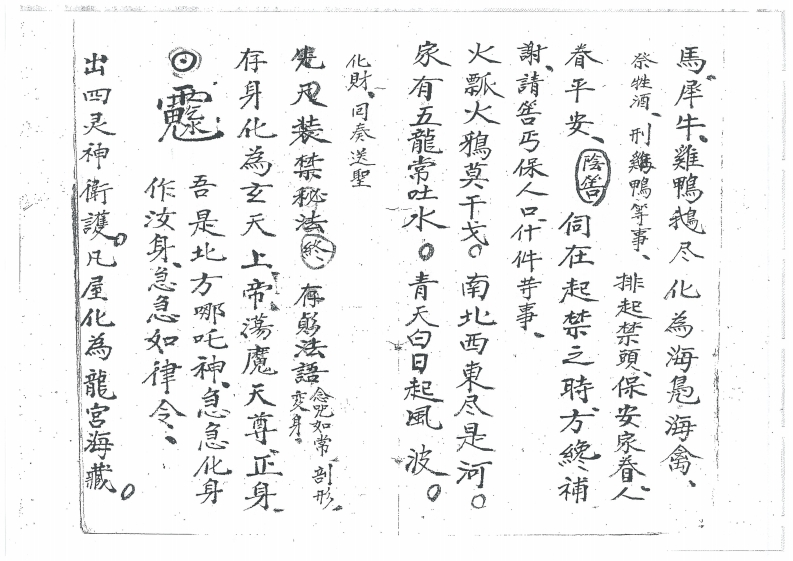 馬犀牛、雞鴨鵝尽化為海鳧海禽、
祭牲酒、刑雞鴨等事、排起禁頭、保安家眷人
眷平安、陰筶 伺在起禁之時、方纔補
謝、請筶丐保人口、什件芋事、
火瓢火鴉莫干戈。南北西東尽是河。
家有五龍常吐水。青天白日起風波。
化財、同奏送聖
咒装禁秘法終、存身法語念咒如常剖形、
变身。
存身化為玄天上帝、蕩魔天尊、正身、
吾是北方哪吒神、急急化身
作汝身、急急如律令、
出四灵神衛護。凡屋化為龍宮海藏。